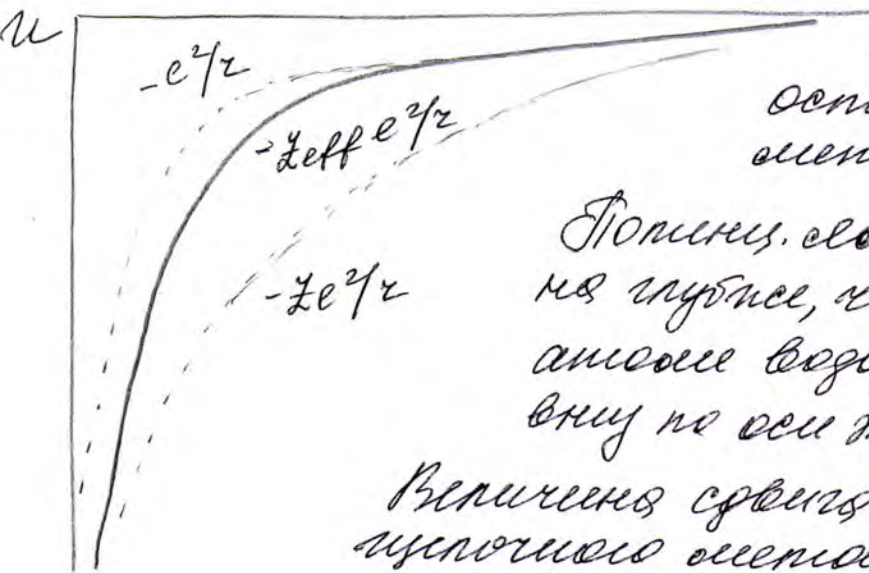 U
-e²/r
-Zeff e²/r
-Ze²/r
ост
мет
Потенц. яо
на глубже, ч
атоме вод
вниз по оси э
Величина сдвига
щелочного мета